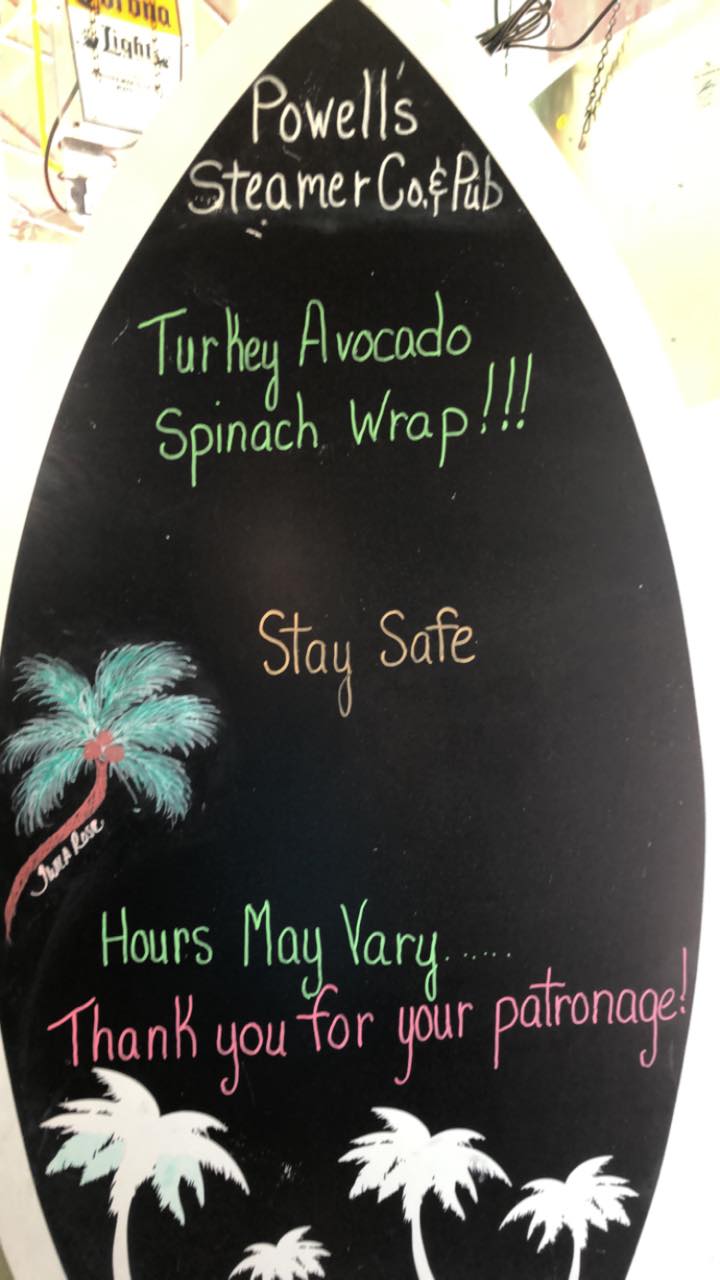 Corona
Light
Powell's
Steamer Co. & Pub
Turkey Avocado
Spinach Wrap!!!
Stay Safe
Hours May Vary......
Thank you for your patronage!